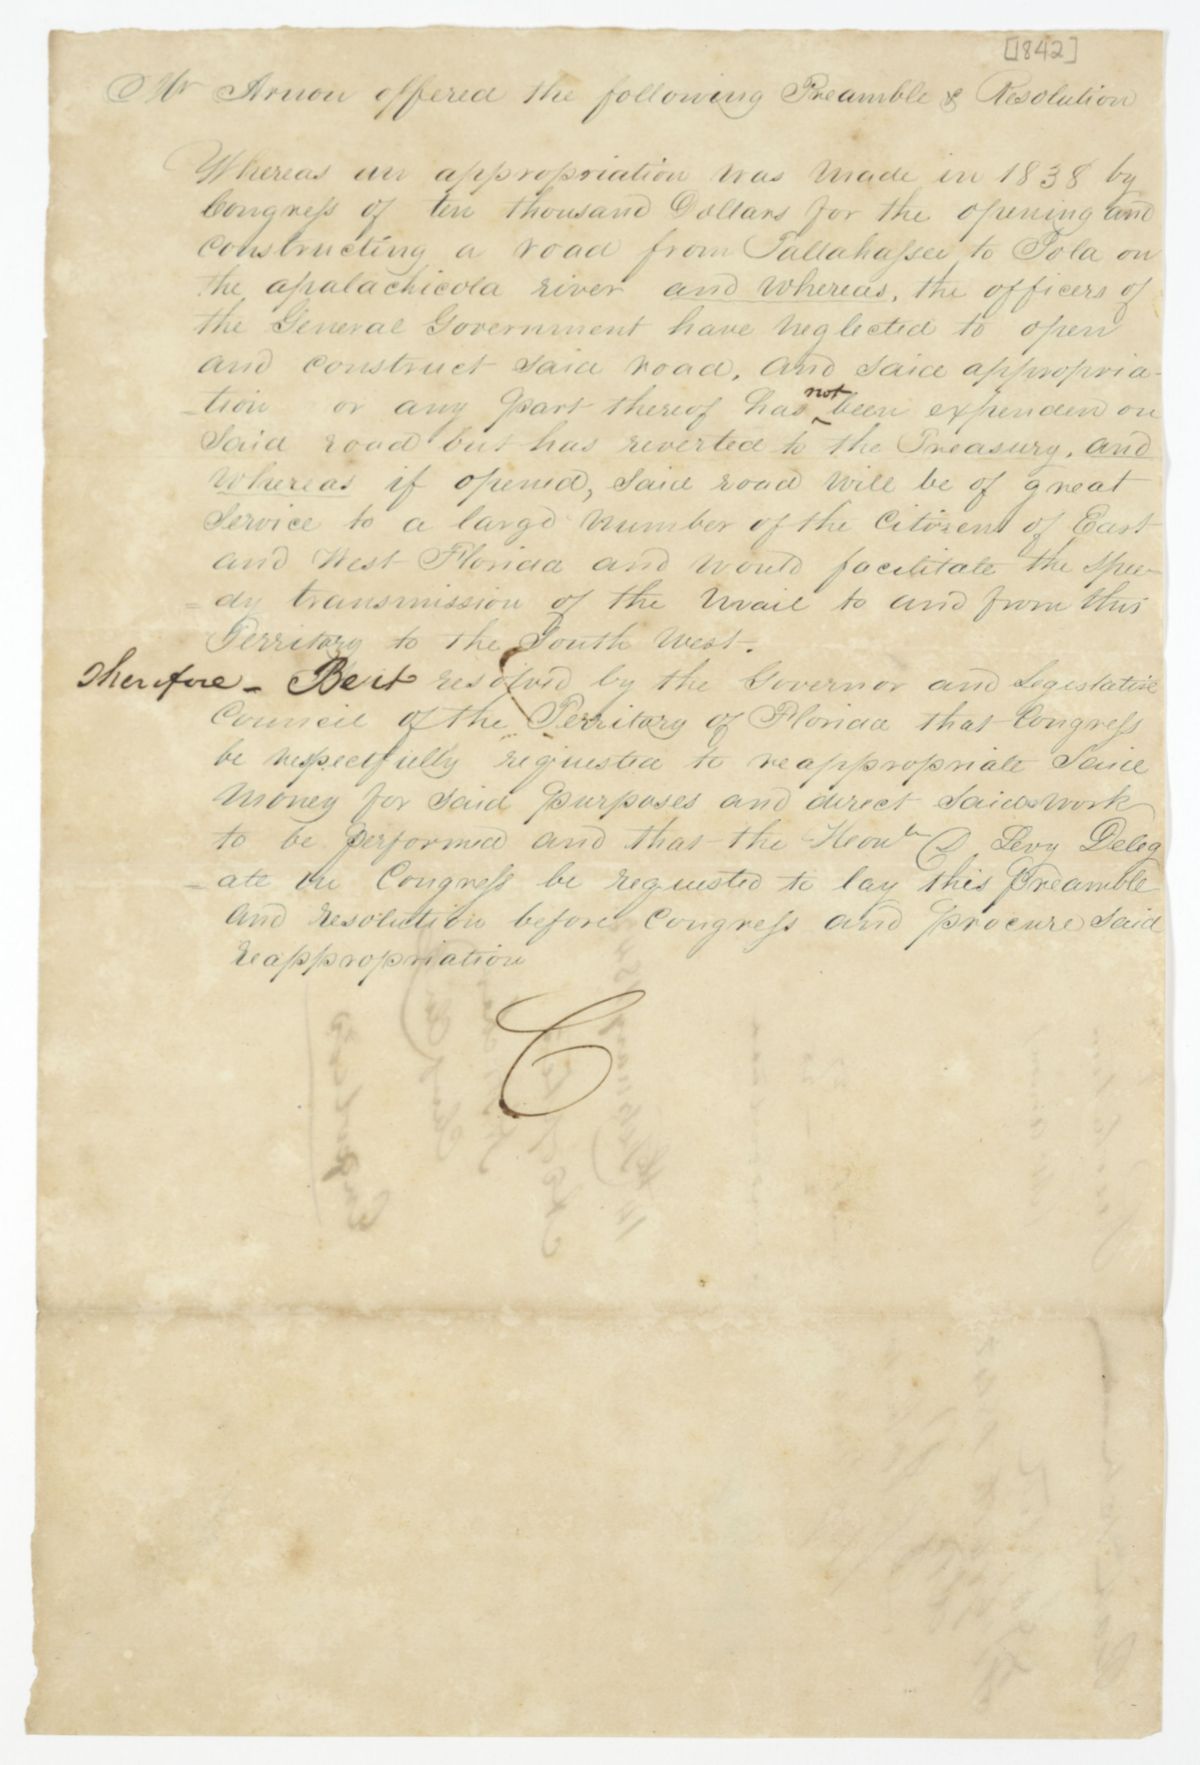 [1842]
Mr Arnou offered the following Preamble & Resolution
Whereas an appropriation was made in 1838 by
Congress of ten thousand Dollars for the opening and
constructing a road from Tallahassee to Iola on
the apalachicola river and whereas, the officers of
the General Government have neglected to open
and construct said road, and said appropria-
-tion or any part thereof has not been expended on
said road but has reverted to the Treasury, and
whereas if opened, said road will be of great
service to a large number of the citizens of East
and West Florida and would facilitate the spee-
=dy transmission of the mail to and from this
Territory to the South West.
Therefore - Be it resolved by the Governor and Legislative
Council of the Territory of Florida that Congress
be respectfully requested to reappropriate said
money for said purposes and direct said work
to be performed and that the Honle D Levy Deleg
-ate in Congress be requested to lay this preamble
and resolution before Congress and procure said
reappropriation
C